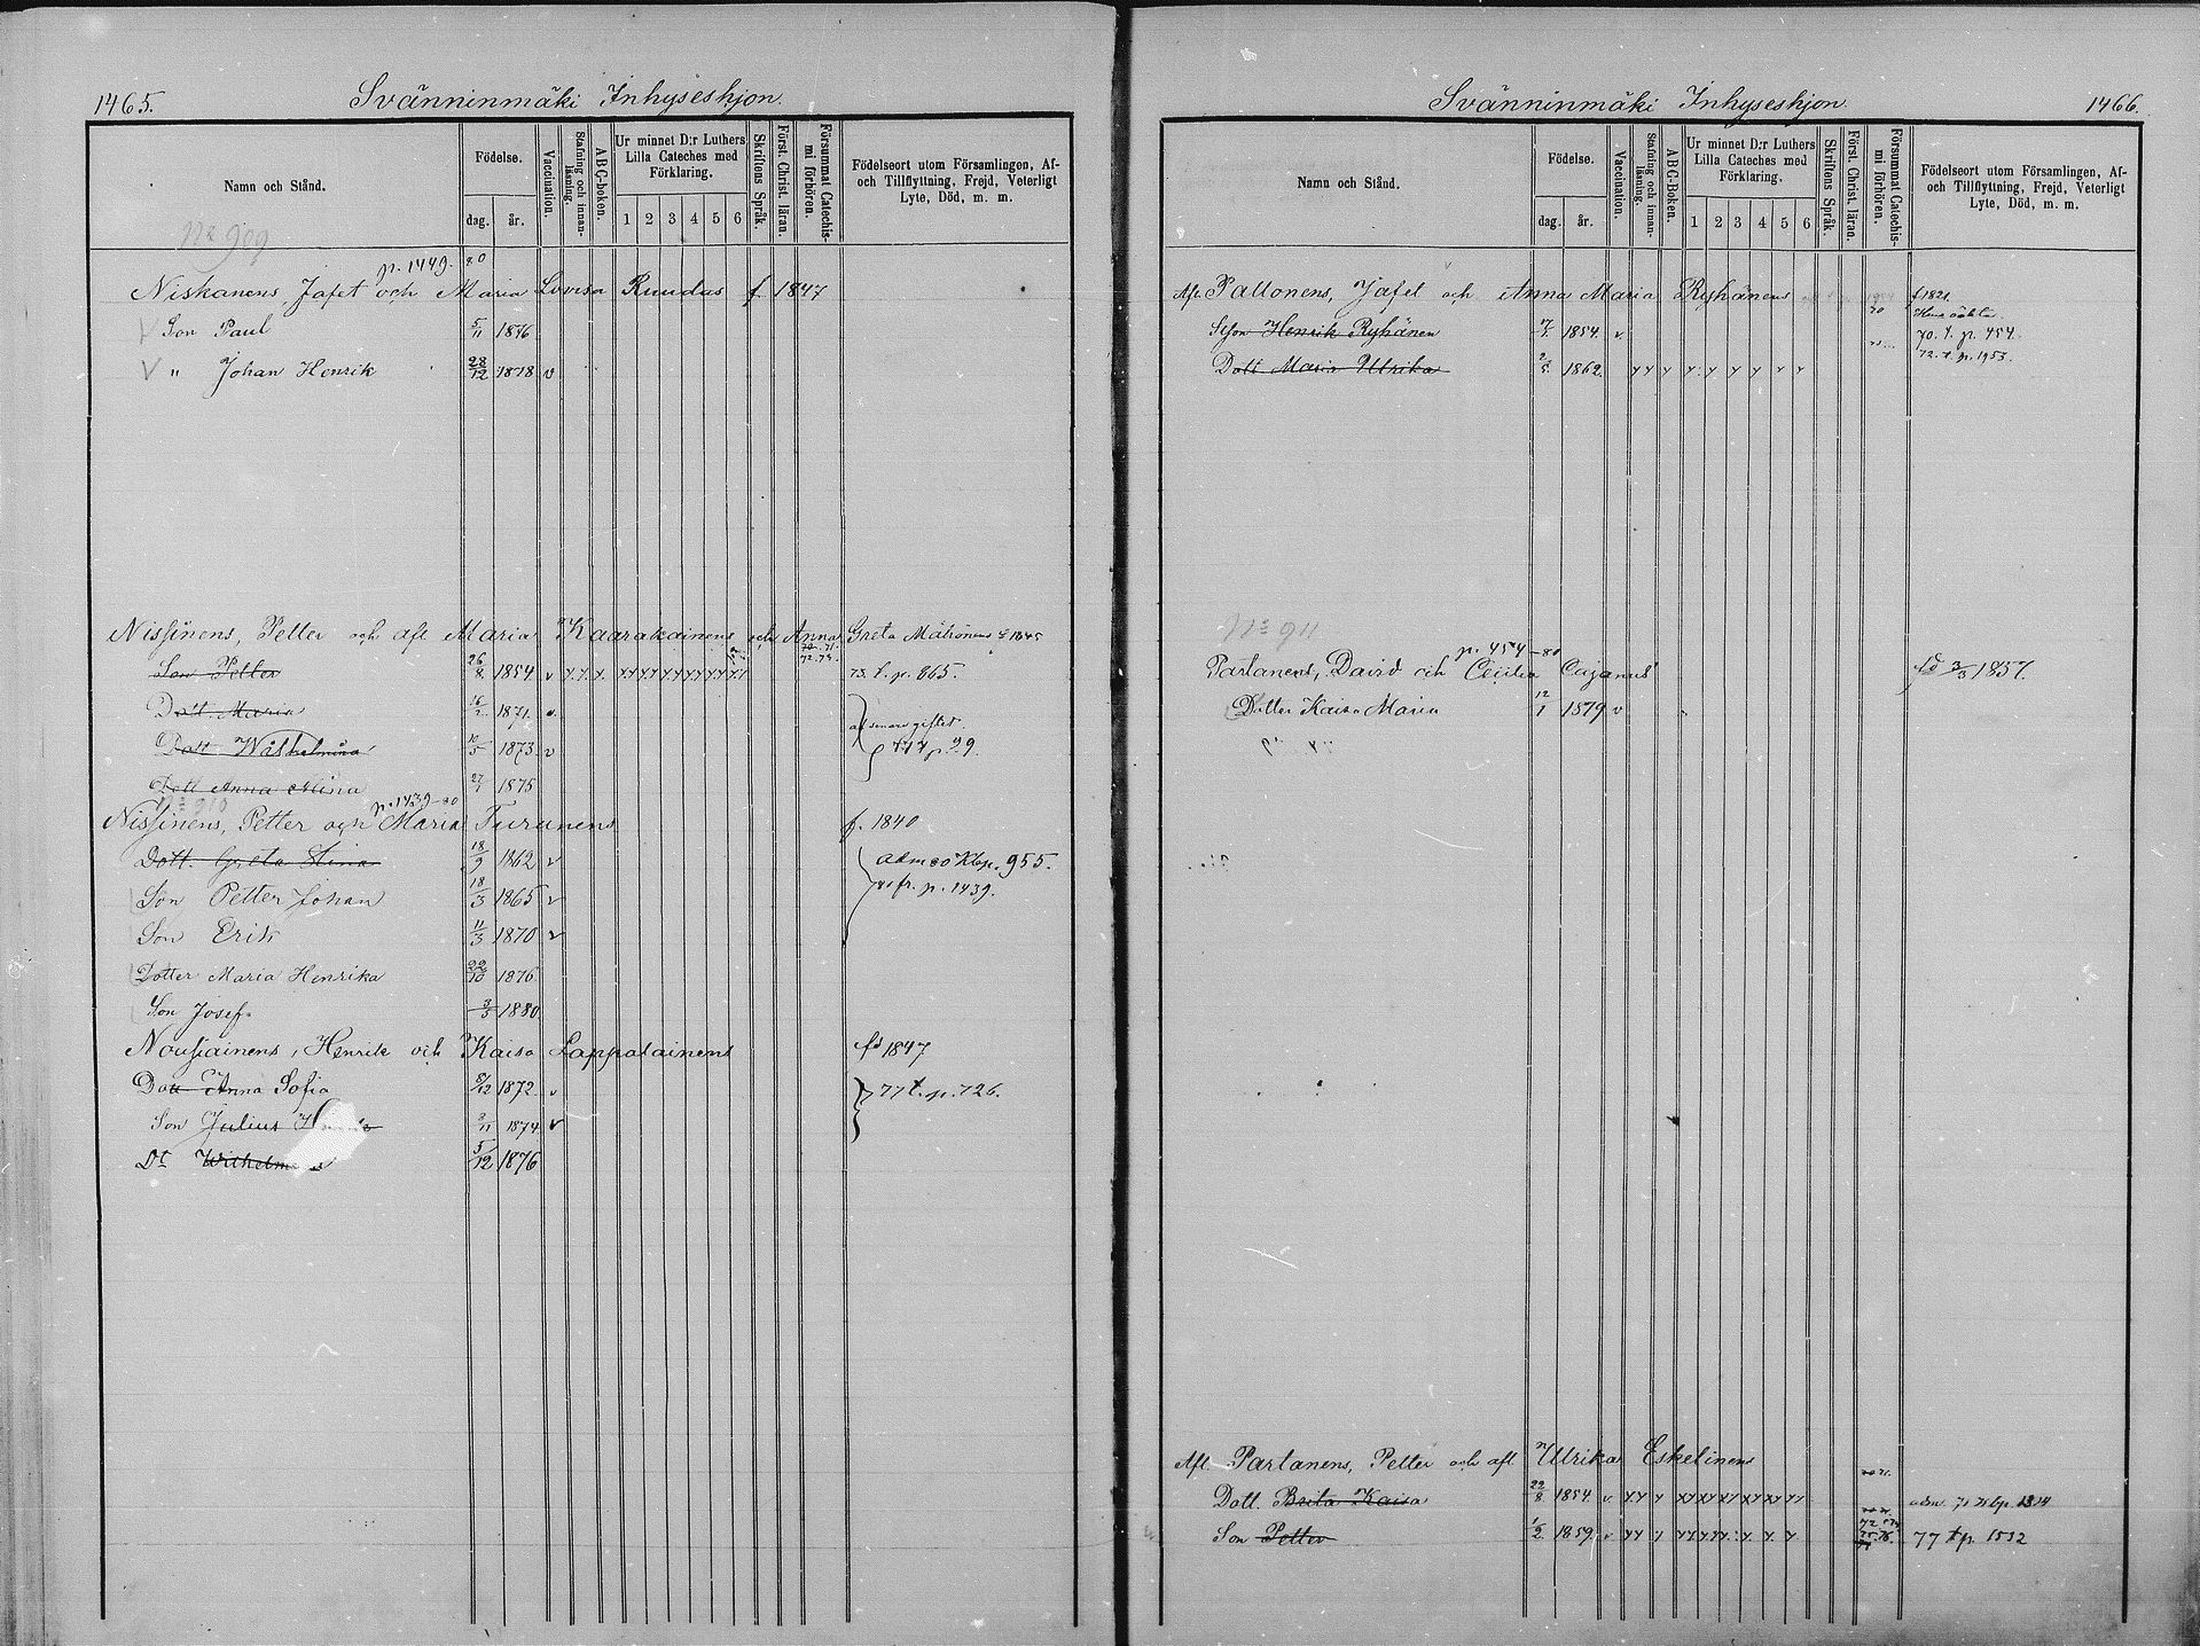 1465. Svänninmäki Inhyseshjon.
Namn och Stånd.
Födelse.
dag. år.
Vaccination.
Stafning och innanläsning.
ABC-boken.
Ur minnet D:r Luthers Lilla Cateches med Förklaring.
1 2 3 4 5 6
Skriftens Språk.
Först. Christ. läran.
Försummat Catechismi förhören.
Födelseort utom Församlingen, Af- och Tillflyttning, Frejd, Veterligt Lyte, Död, m. m.
No 909
p. 1449. 80
Niskanens, Jafet och Maria Lovisa Ruudas f. 1847
Son Paul 5/11 1876
" Johan Henrik 28/12 1878 v
Nissinens, Petter och afl Maria Kaarakainens och Anna Greta f 1845
72.73.
Son Petter 26/8 1854 v 73. t. p. 865.
Dott. Maria 16/2 1871. v.
Dott Wilhelmina 10/5 1873 v p 29.
Dott Anna Mina 27/1 1875
No 910
p. 1439-80
Nissinens, Petter och Maria Turunens f. 1840
Dott. Greta Stina 18/9 1862 v adm 80 Kbp. 955.
Son Petter Johan 18/3 1865 v fr. p. 1439.
Son Erik 11/3 1870 v
Dotter Maria Henrika 22/10 1876
Son Josef. 3/3 1880.
Nousiainens, Henrik och Kaisa Lappalainens fd 1847
Dott Anna Sofia 8/12 1872. v 77 t. p. 726.
Son Julius 2/11 1874. v
Dt Wilhelm 5/12 1876
Svänninmäki Inhyseshjon. 1466.
Namn och Stånd.
Födelse.
dag. år.
Vaccination.
Stafning och innanläsning.
ABC-boken.
Ur minnet D:r Luthers Lilla Cateches med Förklaring.
1 2 3 4 5 6
Skriftens Språk.
Först. Christ. läran.
Försummat Catechismi förhören.
Födelseort utom Församlingen, Af- och Tillflyttning, Frejd, Veterligt Lyte, Död, m. m.
Afl. Pallonens, Jafet och Anna Maria Ryhänens f 1821.
Henrik Ryhänen 1854. v. 70. t. p. 454.
Dott Maria Ulrika 2/5 1862. 72. t. p. 1953.
No 911
p. 454-80
Partanens, David och Cecilia Cajanus fd 3/3 1857.
Dotter Kaisa Maria 12/1 1879 v
Afl. Partanens, Petter och afl Ulrika Eskelinens
Dott. Brita Kaisa 22/8 1854. v
Son Petter 1/2 1859. v 77 t p. 1532